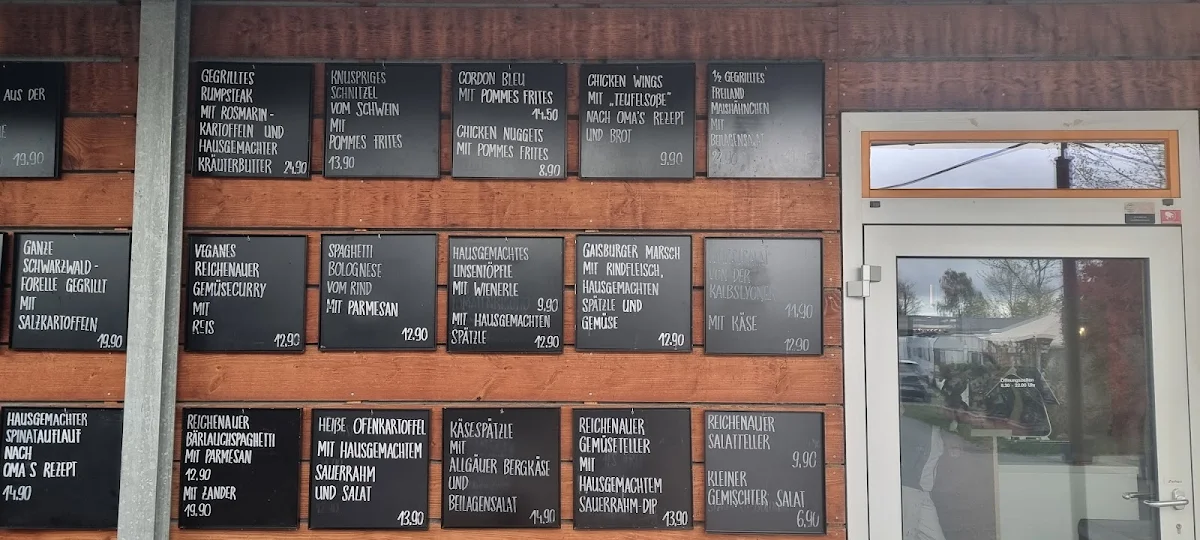 AUS DER
19.90
GEGRILLTES
RUMPSTEAK
MIT ROSMARIN-
KARTOFFELN UND
HAUSGEMACHTER
KRÄUTERBUTTER 24.90
KNUSPRIGES
SCHNITZEL
VOM SCHWEIN
MIT
POMMES FRITES
13,90
CORDON BLEU
MIT POMMES FRITES
14.50
CHICKEN NUGGETS
MIT POMMES FRITES
8,90
CHICKEN WINGS
MIT „TEUFELSOßE"
NACH OMA'S REZEPT
UND BROT
9.90
½ GEGRILLTES
FREILAND
MAISHÄHNCHEN
MIT
BEILAGENSALAT
GANZE
SCHWARZWALD-
FORELLE GEGRILLT
MIT
SALZKARTOFFELN
19.90
VEGANES
REICHENAUER
GEMÜSECURRY
MIT
REIS
12.90
SPAGHETTI
BOLOGNESE
VOM RIND
MIT PARMESAN
12.90
HAUSGEMACHTES
LINSENTÖPFLE
MIT WIENERLE
9,90
MIT HAUSGEMACHTEN
SPÄTZLE 12.90
GAISBURGER MARSCH
MIT RINDFLEISCH,
HAUSGEMACHTEN
SPÄTZLE UND
GEMÜSE
12.90
VON DER
KALBSLYONER
11.90
MIT KÄSE
12.90
HAUSGEMACHTER
SPINATAUFLAUF
NACH
OMA'S REZEPT
14.90
REICHENAUER
BÄRLAUCHSPAGHETTI
MIT PARMESAN
12.90
MIT ZANDER
19.90
HEIßE OFENKARTOFFEL
MIT HAUSGEMACHTEM
SAUERRAHM
UND SALAT
13,90
KÄSESPÄTZLE
MIT
ALLGÄUER BERGKÄSE
UND
BEILAGENSALAT
14,90
REICHENAUER
GEMÜSETELLER
MIT
HAUSGEMACHTEM
SAUERRAHM-DIP
13,90
REICHENAUER
SALATTELLER
9,90
KLEINER
GEMISCHTER SALAT
6,90
Öffnungszeiten